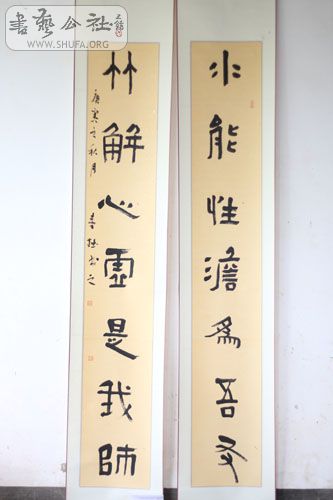 書藝公社
WWW.SHUFA.ORG
水能性澹為吾友
竹解心虛是我師
庚寅年秋月